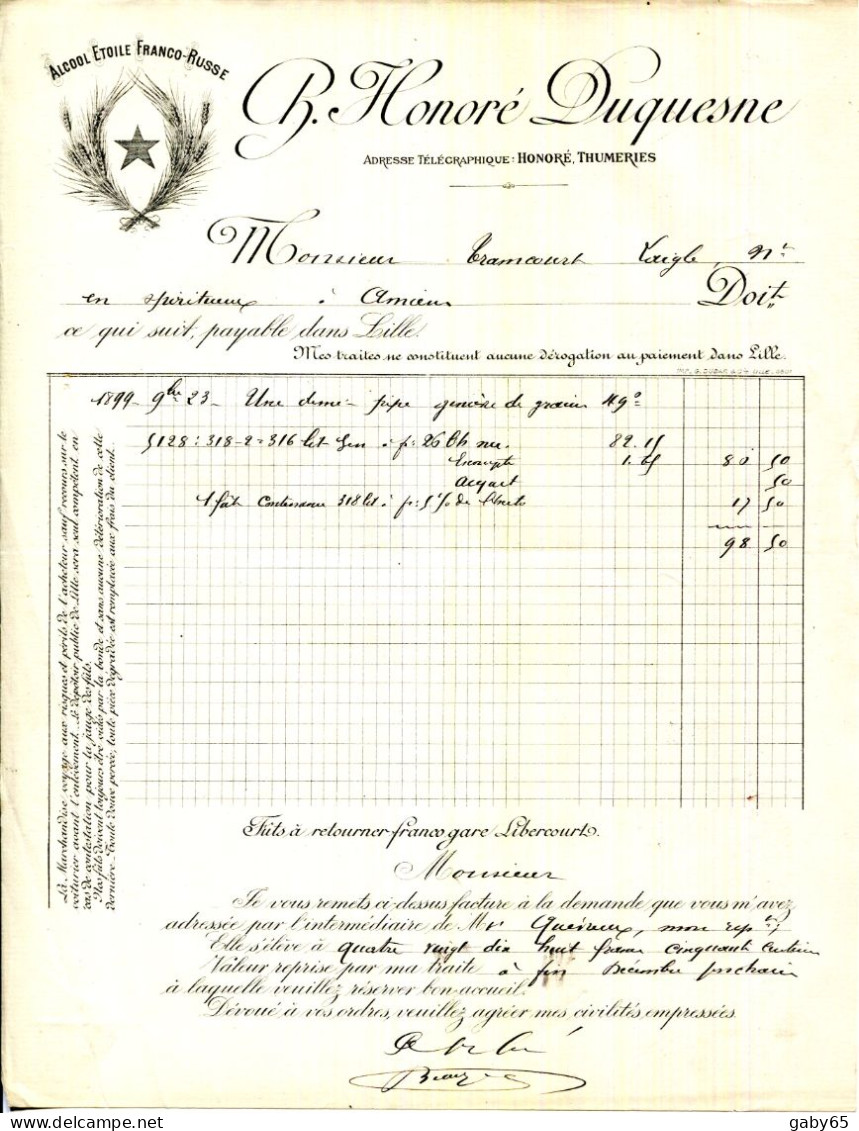 ALCOOL ETOILE FRANCO-RUSSE
Honoré Duquesne
ADRESSE TÉLÉGRAPHIQUE: HONORÉ, THUMERIES
Monsieur Tramcourt Laigle, Nt
en spiritueux à Amiens Doit
ce qui suit, payable dans Lille.
Mes traites ne constituent aucune dérogation au paiement dans Lille.
1899 9bre 23 Une demi-pipe genièvre de grains 49°
5128: 318-2=316 lit Gen à fr: 26 l'h nu. 82.15
Escompte 1.65 80 50
Acquit 50
1 fût Contenance 318 lit à fr: 5 % de l'hecto 17 50
98 50
La Marchandise voyage aux risques et périls de l'acheteur sauf recours sur le
voiturier avant l'enlèvement. Le dépotoir public de Lille sera seul compétent en
cas de contestation pour la jauge des fûts.
Nos fûts doivent toujours être vidés par la bonde et sans aucune détérioration de cette
dernière. Toute douve percée, toute pièce dégradée est remplacée aux frais du client.
Fûts à retourner franco gare Libercourt.
Monsieur
Je vous remets ci-dessus facture à la demande que vous m'avez
adressée par l'intermédiaire de Mr mon
Elle s'élève à quatre vingt dix huit francs cinquante centimes
Valeur reprise par ma traite à fin Décembre prochain
à laquelle veuillez réserver bon accueil.
Dévoué à vos ordres, veuillez agréer mes civilités empressées.
delcampe.net
gaby65